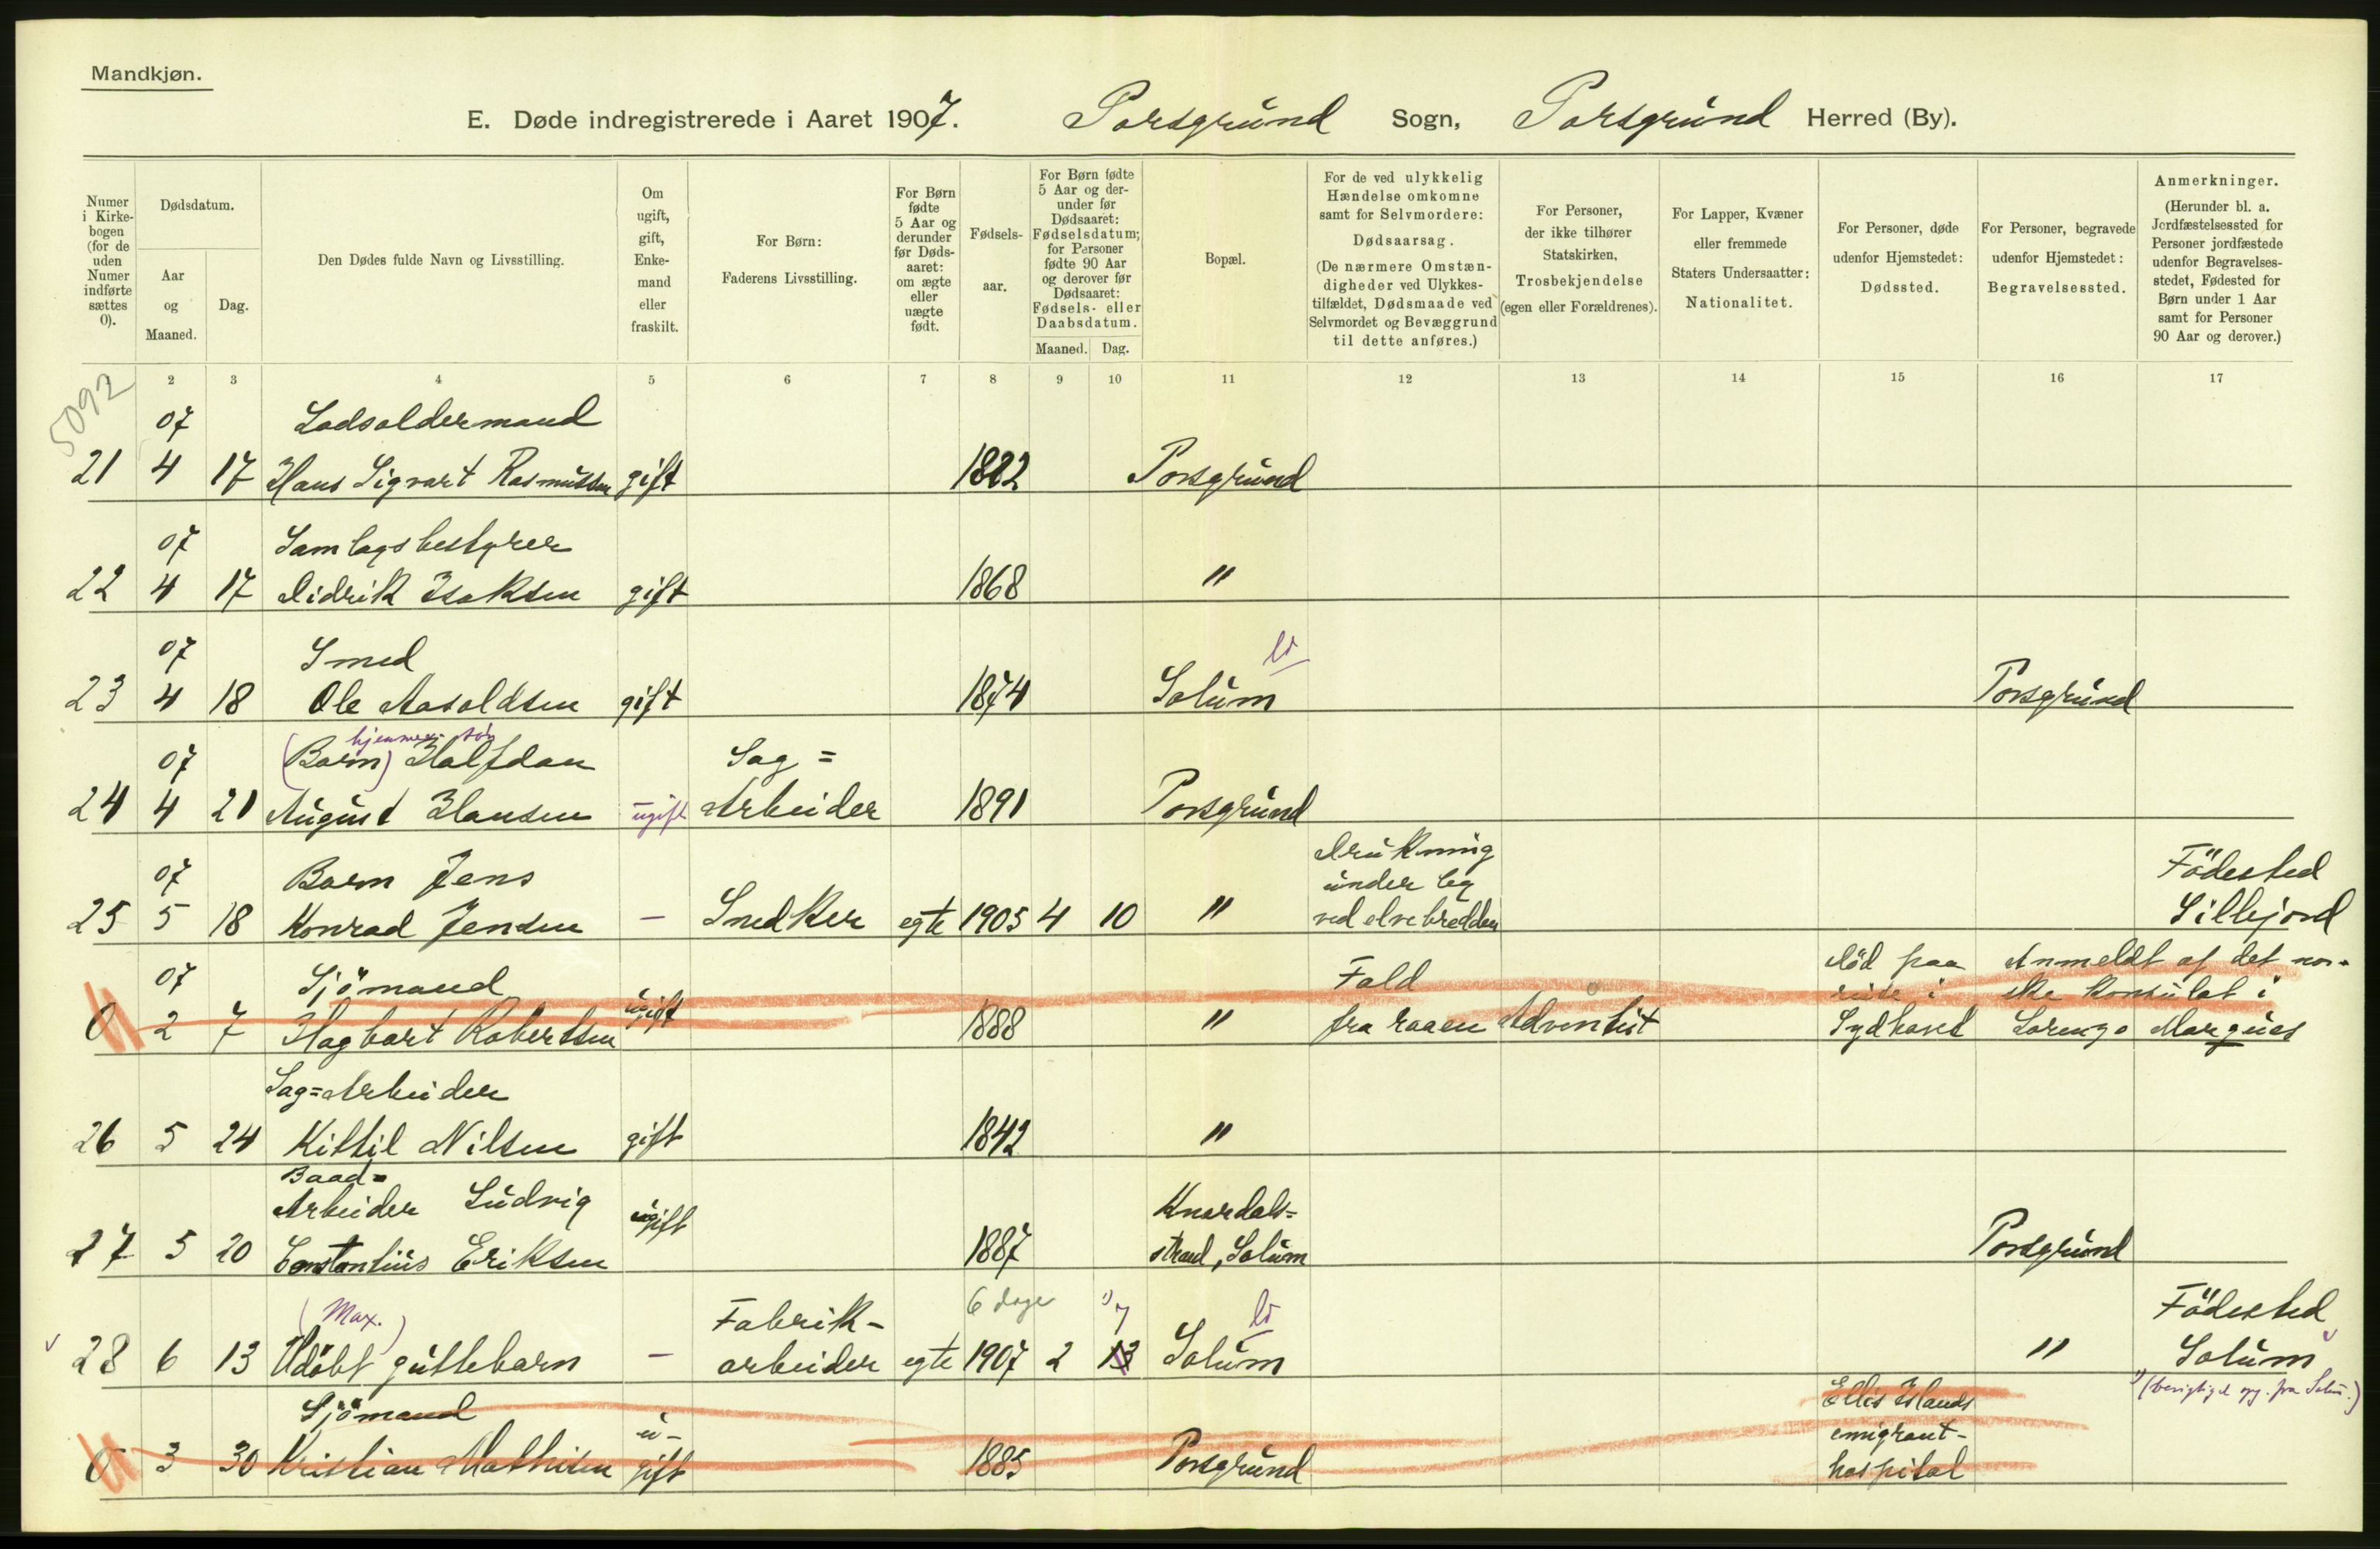 Mandkjøn.
E. Døde indregistrerede i Aaret 1907. Porsgrund Sogn, Porsgrund Herred (By).
Numer i Kirkebogen (for de uden Numer indførte sættes 0).
Dødsdatum.
Aar og Maaned.
Dag.
Den Dødes fulde Navn og Livsstilling.
Om ugift, gift, Enkemand eller fraskilt.
For Børn: Faderens Livsstilling.
For Børn fødte 5 Aar og derunder før Dødsaaret: om ægte eller uægte født.
Fødselsaar.
For Børn fødte 5 Aar og derunder før Dødsaaret: Fødselsdatum; for Personer fødte 90 Aar og derover før Dødsaaret: Fødsels- eller Daabsdatum.
Maaned. Dag.
Bopæl.
For de ved ulykkelig Hændelse omkomne samt for Selvmordere: Dødsaarsag. (De nærmere Omstændigheder ved Ulykkestilfældet, Dødsmaade ved Selvmordet og Bevæggrund til dette anføres.)
For Personer, der ikke tilhører Statskirken, Trosbekjendelse (egen eller Forældrenes).
For Lapper, Kvæner eller fremmede Staters Undersaatter: Nationalitet.
For Personer, døde udenfor Hjemstedet: Dødssted.
For Personer, begravede udenfor Hjemstedet: Begravelsessted.
Anmerkninger. (Herunder bl. a. Jordfæstelsessted for Personer jordfæstede udenfor Begravelsesstedet, Fødested for Børn under 1 Aar samt for Personer 90 Aar og derover.)
2 3 4 5 6 7 8 9 10 11 12 13 14 15 16 17
5092
07 Lodsoldermand
21 4 17 Hans Sigvart Rasmussen gift 1822 Porsgrund
07 Samlagsbestyrer
22 4 17 Didrik Isaksen gift 1868 "
07 Smed
23 4 18 Ole Aasoldsen gift 1874 Solum Porsgrund
07 (Barn) Halfdan Sag=
24 4 21 August Hansen ugift Arbeider 1891 Porsgrund
07 Barn Jens Drukning under leg Födested
25 5 18 Konrad Jensen — Snedker egte 1905 4 10 " ved elvebredden Sillejord
07 Sjömand ugift Fald död paa Anmeldt af det nor-
reise i ske Konsulat i
0 2 7 Hagbart Robertsen 1888 " fra raaen Adventist Sydhavet Lorenzo Marques
Sag=Arbeider
26 5 24 Kittil Nilsen gift 1842 "
Baad=
Arbeider Ludvig ugift Knardals=
27 5 20 Constantius Eriksen 1887 strand, Solum Porsgrund
(Max.) Fabrik- 6 dage 1) 7 Födested
v 28 6 13 Udöbt guttebarn — arbeider egte 1907 2 13 Solum " Solum v
1) (berigtiget opg. fra Solum.)
Sjömand u- Ellis Islands
emigrant-
0 3 30 Kristian Mathisen gift 1885 Porsgrund hospital